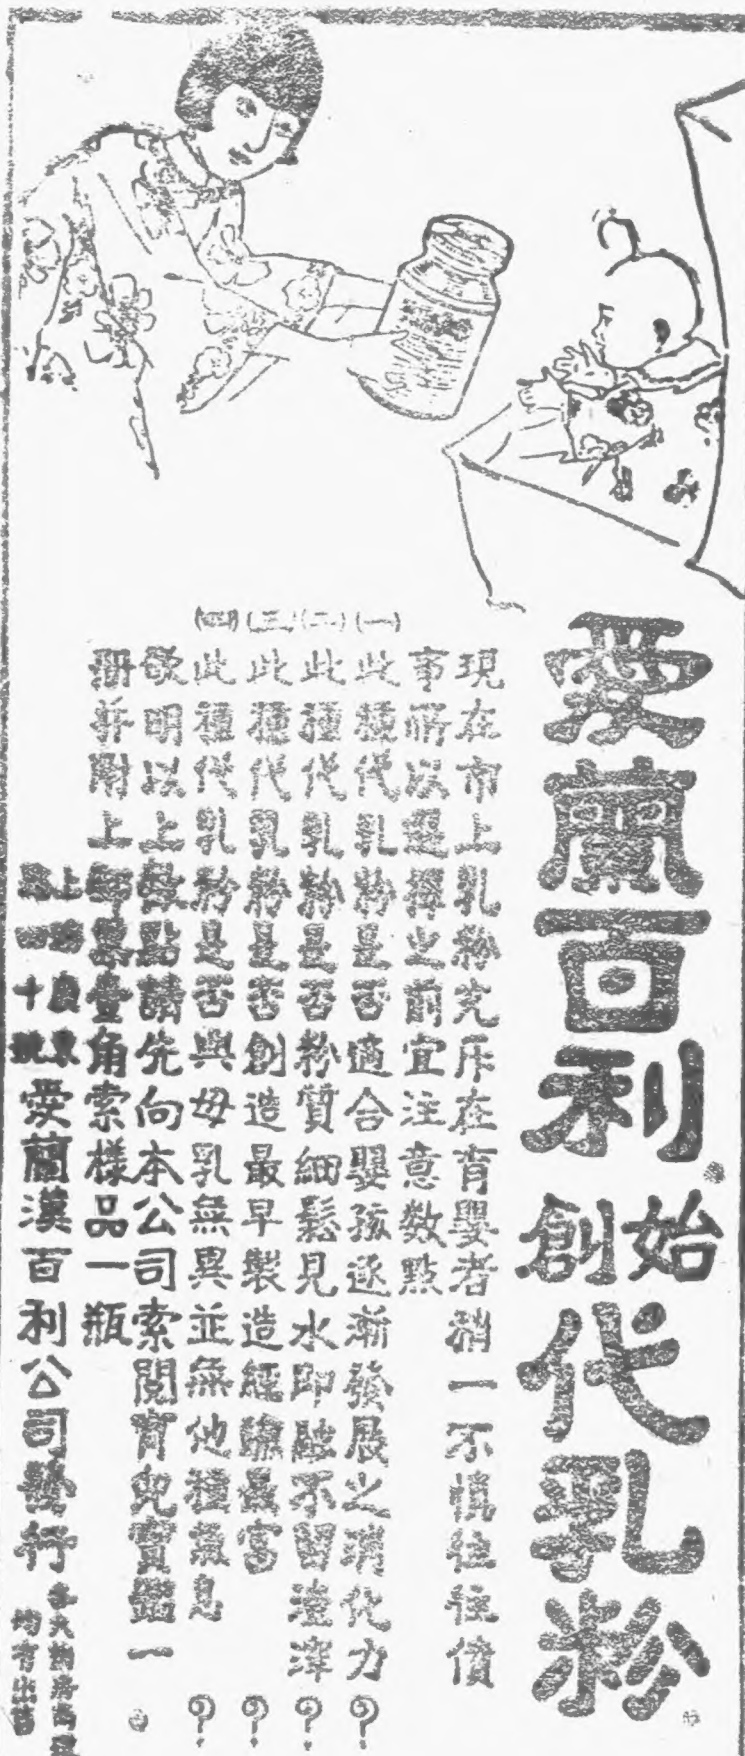 愛蘭百利
始創
代乳粉
現在市上乳粉充斥在育嬰者稍一不慎往往僨
事所以選擇之前宜注意數點
(一)此種代乳粉是否適合嬰孩逐漸發展之消化力?
(二)此種代乳粉是否粉質細鬆見水即融不留渣滓?
(三)此種代乳粉是否創造最早製造經驗最富?
(四)此種代乳粉是否與母乳無異並無他種氣息?
欲明以上數點請先向本公司索閱育兒寶鑑一
冊并附上郵票壹角索樣品一瓶
上海廣東
路四十號
愛蘭漢百利公司發行
各大藥房商號
均有出售